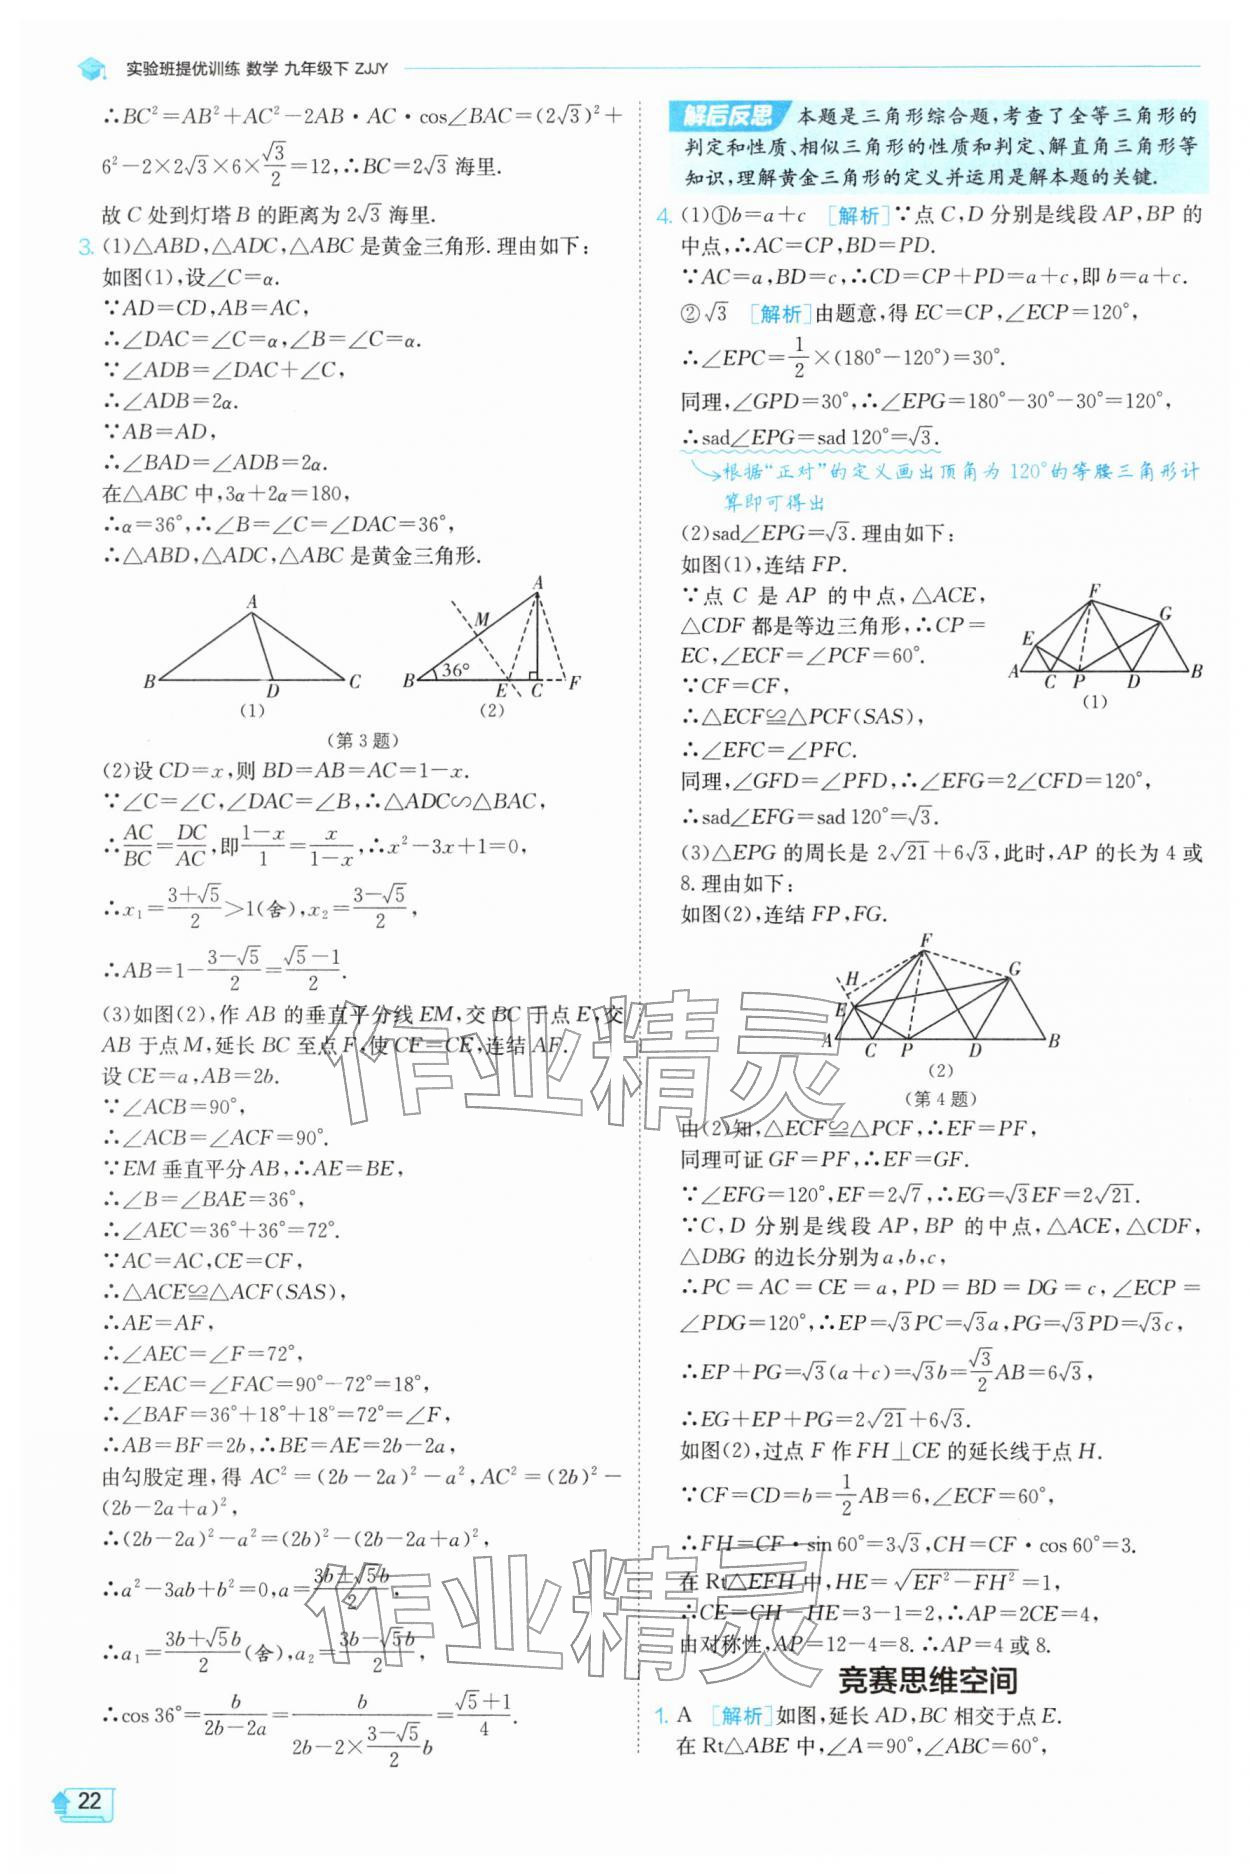 实验班提优训练 数学 九年级下 ZJJY
∴BC²=AB²+AC²-2AB·AC·cos∠BAC=(2√3)²+
6²-2×2√3×6×√3/2=12,∴BC=2√3 海里.
故 C 处到灯塔 B 的距离为 2√3 海里.
3. (1)△ABD,△ADC,△ABC 是黄金三角形. 理由如下:
如图(1),设∠C=α.
∵AD=CD,AB=AC,
∴∠DAC=∠C=α,∠B=∠C=α.
∵∠ADB=∠DAC+∠C,
∴∠ADB=2α.
∵AB=AD,
∴∠BAD=∠ADB=2α.
在△ABC 中,3α+2α=180,
∴α=36°,∴∠B=∠C=∠DAC=36°,
∴△ABD,△ADC,△ABC 是黄金三角形.
A
B D C
(1)
A
M
36°
B E C F
(2)
(第 3 题)
(2)设 CD=x,则 BD=AB=AC=1-x.
∵∠C=∠C,∠DAC=∠B,∴△ADC∽△BAC,
∴AC/BC=DC/AC,即(1-x)/1=x/(1-x),∴x²-3x+1=0,
∴x₁=(3+√5)/2>1(舍),x₂=(3-√5)/2,
∴AB=1-(3-√5)/2=(√5-1)/2.
(3)如图(2),作 AB 的垂直平分线 EM,交 BC 于点 E,交
AB 于点 M,延长 BC 至点 F,使 CF=CE,连结 AF.
设 CE=a,AB=2b.
∵∠ACB=90°,
∴∠ACB=∠ACF=90°.
∵EM 垂直平分 AB,∴AE=BE,
∴∠B=∠BAE=36°,
∴∠AEC=36°+36°=72°.
∵AC=AC,CE=CF,
∴△ACE≌△ACF(SAS),
∴AE=AF,
∴∠AEC=∠F=72°,
∴∠EAC=∠FAC=90°-72°=18°,
∴∠BAF=36°+18°+18°=72°=∠F,
∴AB=BF=2b,∴BE=AE=2b-2a,
由勾股定理,得 AC²=(2b-2a)²-a²,AC²=(2b)²-
(2b-2a+a)²,
∴(2b-2a)²-a²=(2b)²-(2b-2a+a)²,
∴a²-3ab+b²=0,a=(3b±√5b)/2,
∴a₁=(3b+√5b)/2(舍),a₂=(3b-√5b)/2,
∴cos 36°=b/(2b-2a)=b/(2b-2×(3-√5)/2 b)=(√5+1)/4.
22
解后反思 本题是三角形综合题,考查了全等三角形的
判定和性质、相似三角形的性质和判定、解直角三角形等
知识,理解黄金三角形的定义并运用是解本题的关键.
4. (1)①b=a+c [解析]∵点 C,D 分别是线段 AP,BP 的
中点,∴AC=CP,BD=PD.
∵AC=a,BD=c,∴CD=CP+PD=a+c,即 b=a+c.
②√3 [解析]由题意,得 EC=CP,∠ECP=120°,
∴∠EPC=1/2×(180°-120°)=30°.
同理,∠GPD=30°,∴∠EPG=180°-30°-30°=120°,
∴sad∠EPG=sad 120°=√3.
根据“正对”的定义画出顶角为 120°的等腰三角形计
算即可得出
(2)sad∠EPG=√3. 理由如下:
如图(1),连结 FP.
∵点 C 是 AP 的中点,△ACE,
△CDF 都是等边三角形,∴CP=
EC,∠ECF=∠PCF=60°.
∵CF=CF,
∴△ECF≌△PCF(SAS),
∴∠EFC=∠PFC.
F
G
E
A C P D B
(1)
同理,∠GFD=∠PFD,∴∠EFG=2∠CFD=120°,
∴sad∠EFG=sad 120°=√3.
(3)△EPG 的周长是 2√21+6√3,此时,AP 的长为 4 或
8. 理由如下:
如图(2),连结 FP,FG.
F
H G
E
A C P D B
(2)
(第 4 题)
由(2)知,△ECF≌△PCF,∴EF=PF,
同理可证 GF=PF,∴EF=GF.
∵∠EFG=120°,EF=2√7,∴EG=√3EF=2√21.
∵C,D 分别是线段 AP,BP 的中点,△ACE,△CDF,
△DBG 的边长分别为 a,b,c,
∴PC=AC=CE=a,PD=BD=DG=c,∠ECP=
∠PDG=120°,∴EP=√3PC=√3a,PG=√3PD=√3c,
∴EP+PG=√3(a+c)=√3b=√3/2 AB=6√3,
∴EG+EP+PG=2√21+6√3.
如图(2),过点 F 作 FH⊥CE 的延长线于点 H.
∵CF=CD=b=1/2 AB=6,∠ECF=60°,
∴FH=CF·sin 60°=3√3,CH=CF·cos 60°=3.
在 Rt△EFH 中,HE=√(EF²-FH²)=1,
∴CE=CH-HE=3-1=2,∴AP=2CE=4,
由对称性,AP=12-4=8. ∴AP=4 或 8.
竞赛思维空间
1. A [解析]如图,延长 AD,BC 相交于点 E.
在 Rt△ABE 中,∠A=90°,∠ABC=60°,
作业精灵
作业精灵